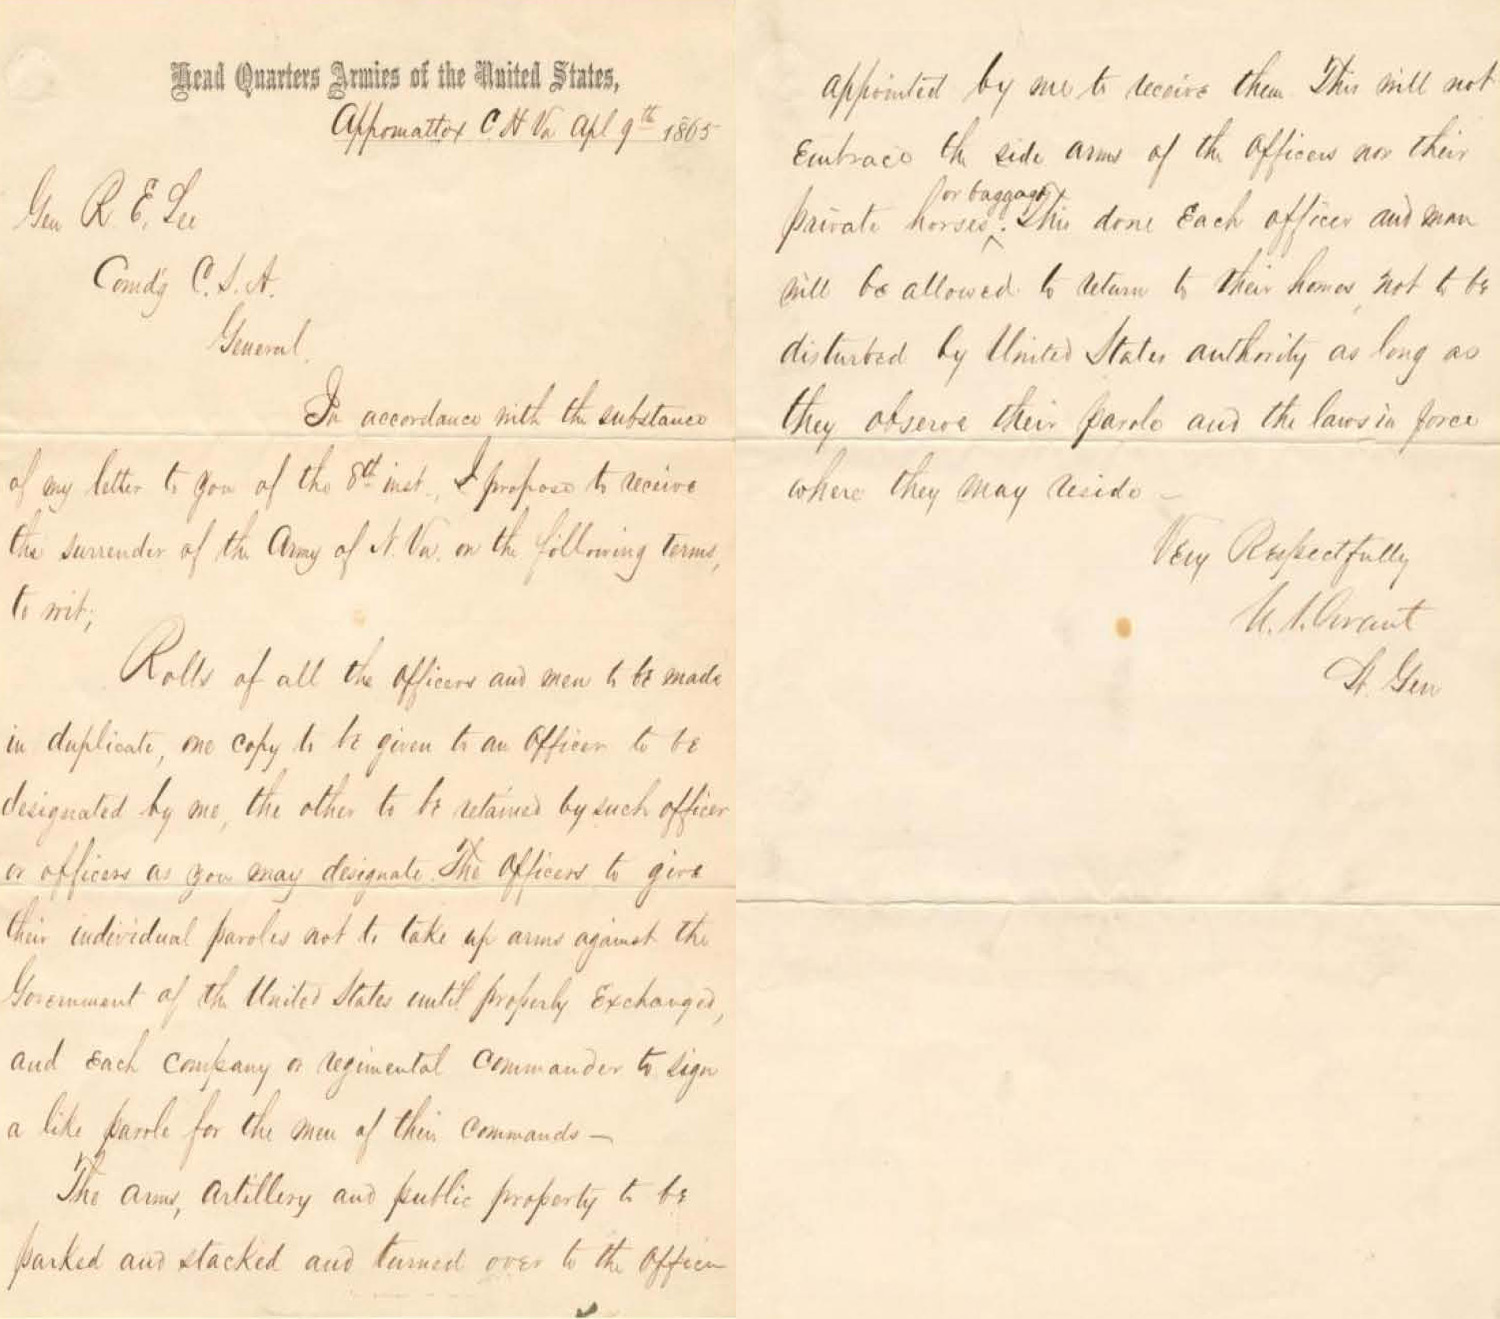 Head Quarters Armies of the United States,
Appomattox C. H. Va Apl 9th 1865
Gen R. E. Lee
Comdg C. S. A.
General,
In accordance with the substance
of my letter to you of the 8th inst., I propose to receive
the surrender of the Army of N. Va. on the following terms,
to wit;
Rolls of all the officers and men to be made
in duplicate, one copy to be given to an officer to be
designated by me, the other to be retained by such officer
or officers as you may designate. The officers to give
their individual paroles not to take up arms against the
Government of the United States until properly Exchanged,
and Each company or regimental commander to sign
a like parole for the men of their commands —
The arms, artillery and public property to be
parked and stacked and turned over to the officer
appointed by me to receive them. This will not
Embrace the side arms of the officers nor their
or baggage
private horses. This done Each officer and man
will be allowed to return to their homes, not to be
disturbed by United States authority as long as
they observe their parole and the laws in force
where they may reside –
Very Respectfully
U. S. Grant
Lt. Gen